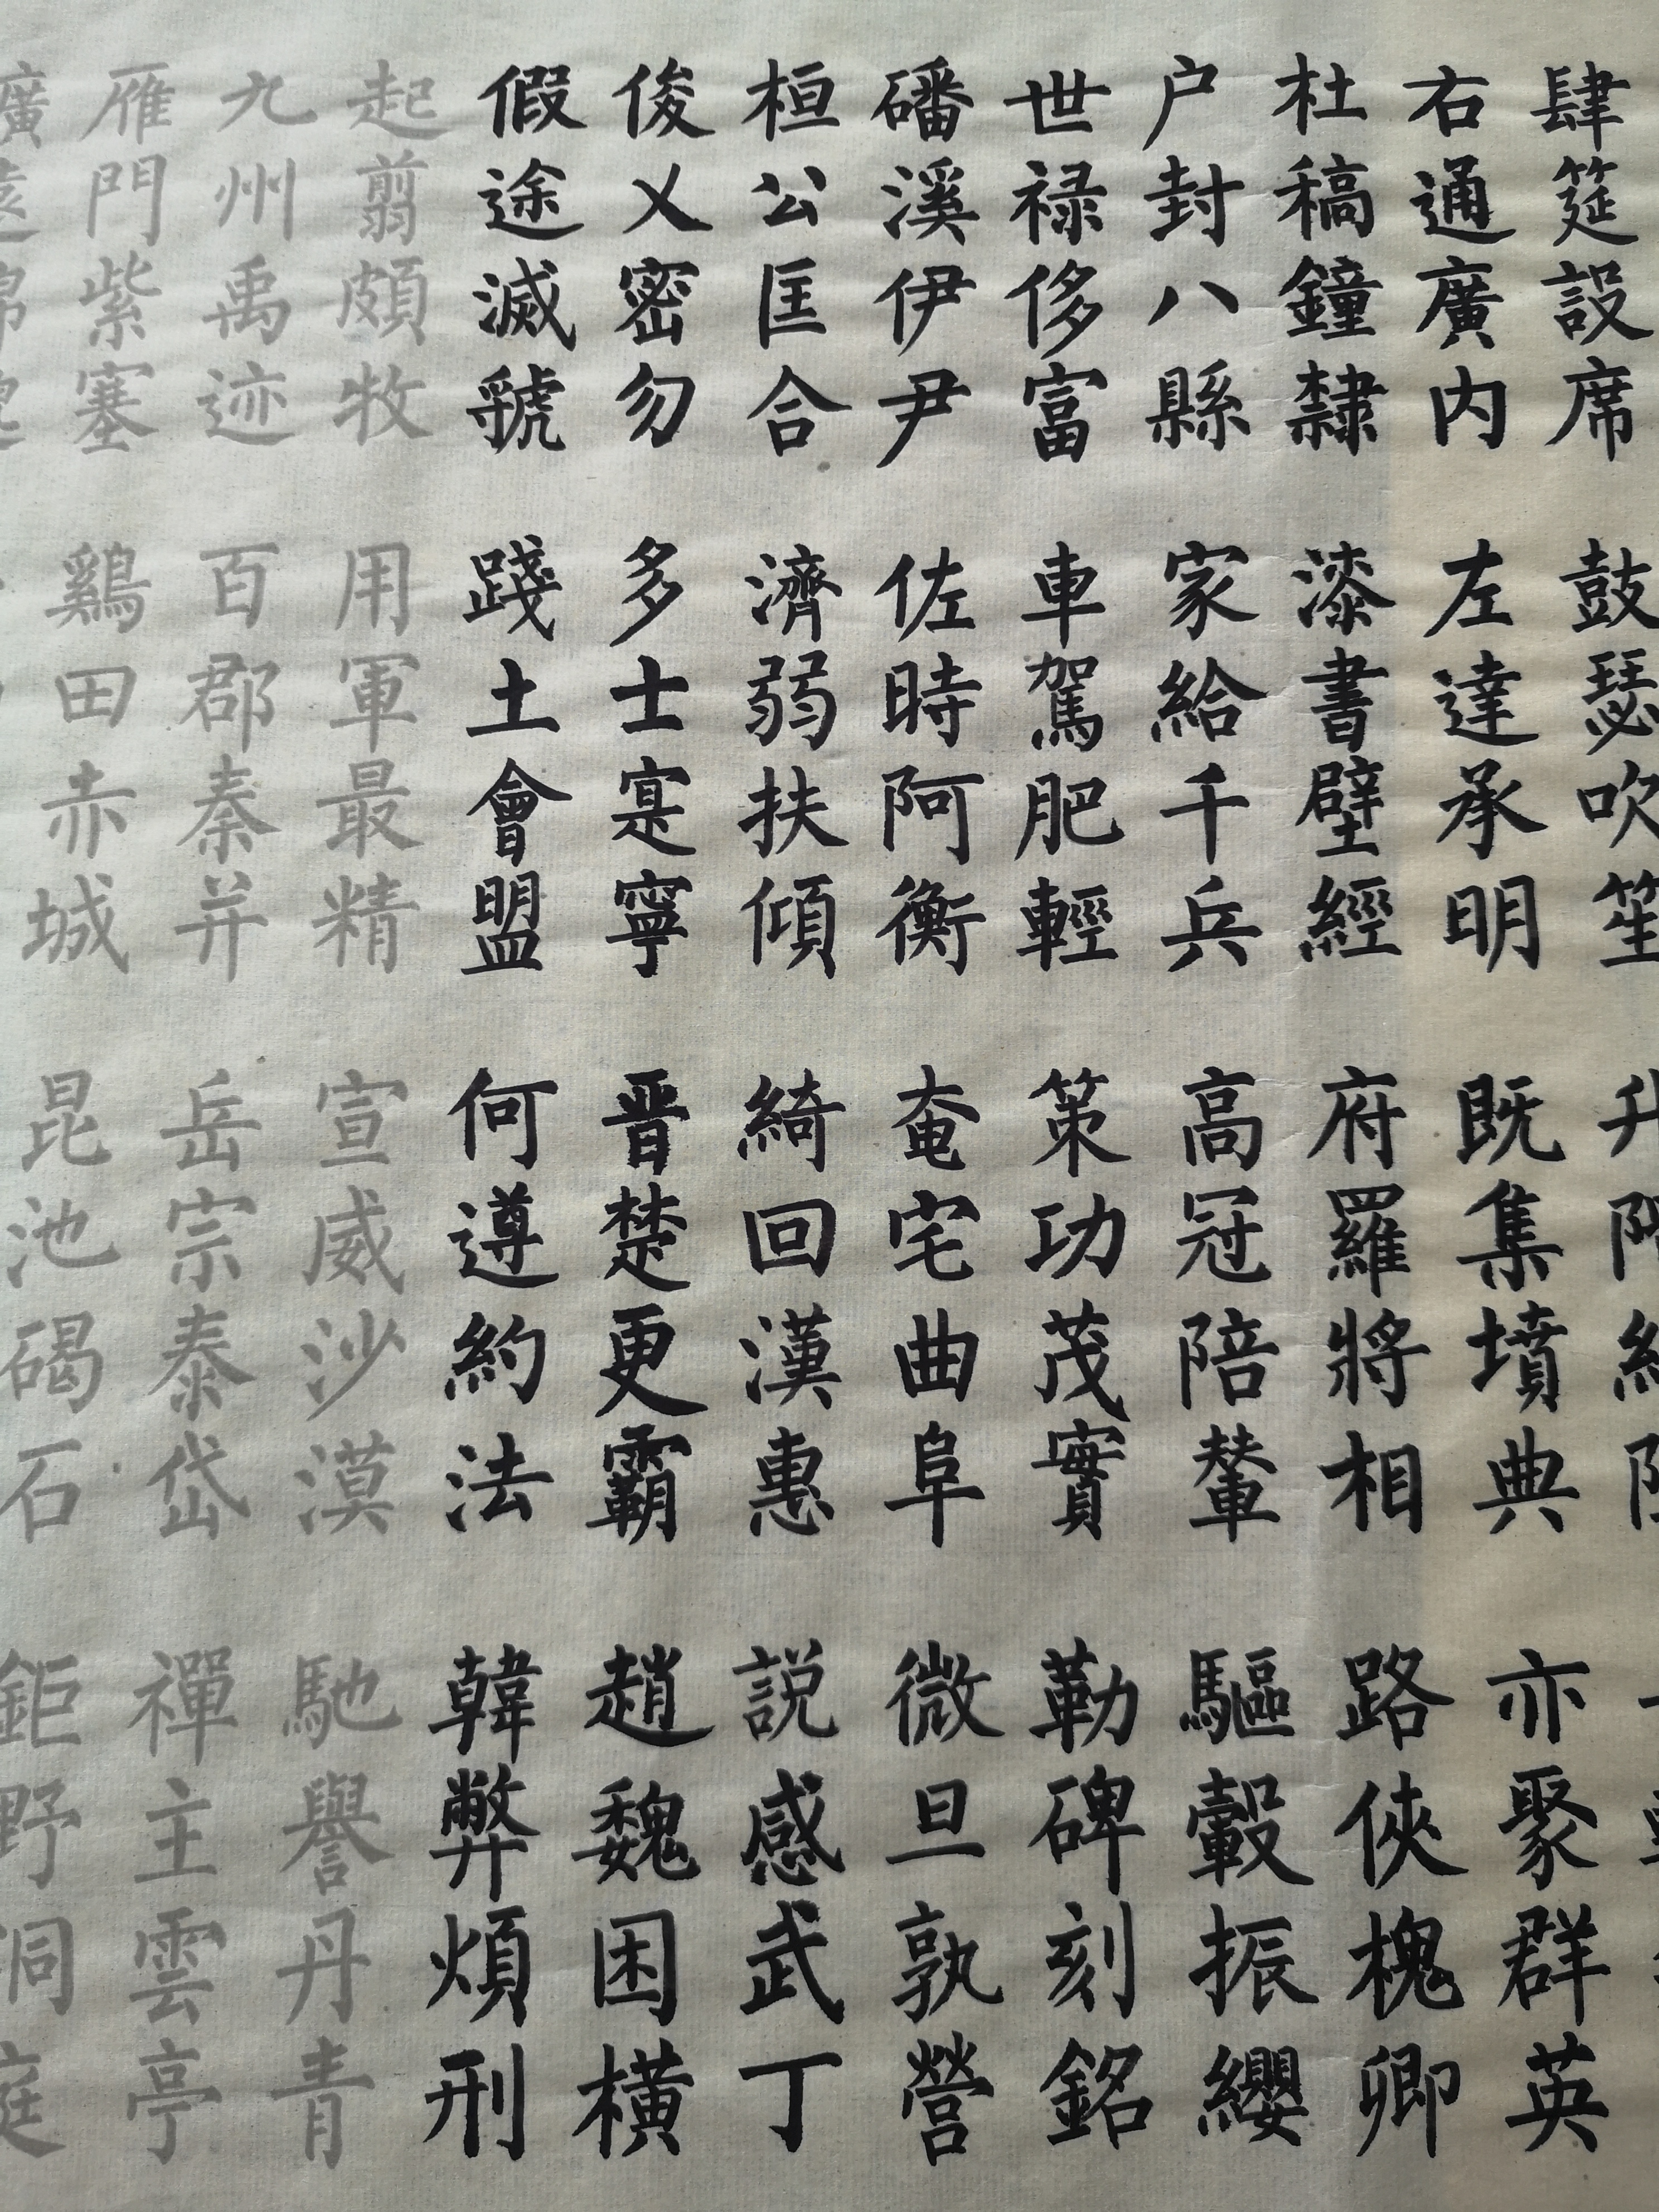 肆筵設席 鼓瑟吹笙 升
右通廣内 左達承明 既集墳典 亦聚群英
杜稿鐘隸 漆書壁經 府羅將相 路俠槐卿
户封八縣 家給千兵 高冠陪輦 驅轂振纓
世禄侈富 車駕肥輕 策功茂實 勒碑刻銘
磻溪伊尹 佐時阿衡 奄宅曲阜 微旦孰營
桓公匡合 濟弱扶傾 綺回漢惠 説感武丁
俊乂密勿 多士寔寧 晉楚更霸 趙魏困橫
假途滅虢 踐土會盟 何遵約法 韓弊煩刑
起翦頗牧 用軍最精 宣威沙漠 馳譽丹青
九州禹迹 百郡秦并 岳宗泰岱 禪主雲亭
雁門紫塞 鷄田赤城 昆池碣石 鉅野洞庭